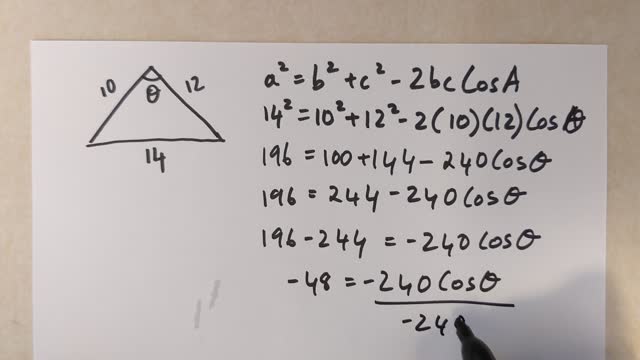 10
12
θ
14
a² = b² + c² - 2bc Cos A
14² = 10² + 12² - 2(10)(12) Cos θ
196 = 100 + 144 - 240 Cos θ
196 = 244 - 240 Cos θ
196 - 244 = -240 Cos θ
-48 = -240 Cos θ
-24